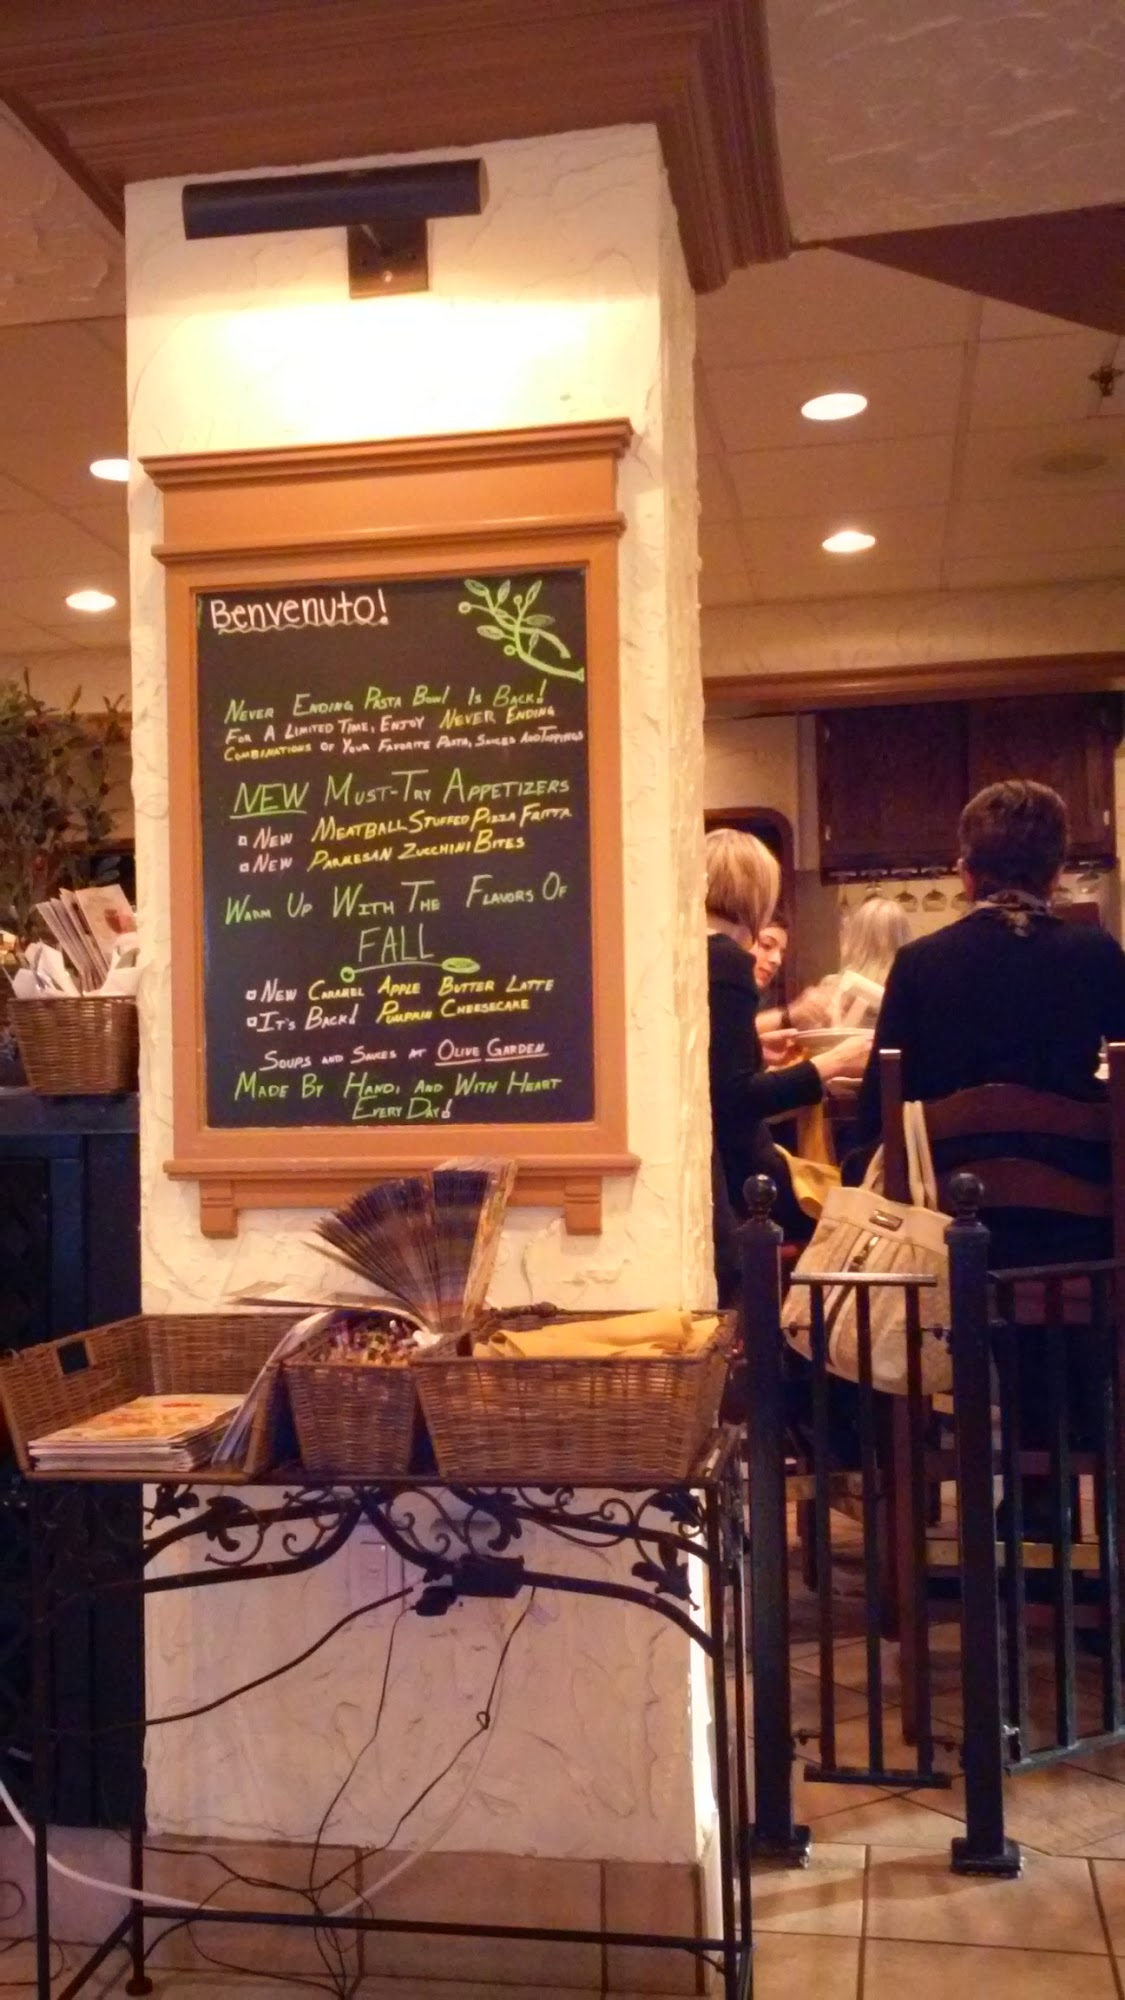 Benvenuto!
NEVER ENDING PASTA BOWL IS BACK!
FOR A LIMITED TIME, ENJOY NEVER ENDING
COMBINATIONS OF YOUR FAVORITE PASTA, SAUCES AND TOPPINGS
NEW MUST-TRY APPETIZERS
NEW MEATBALL STUFFED PIZZA FRITTA
NEW PARMESAN ZUCCHINI BITES
WARM UP WITH THE FLAVORS OF
FALL
NEW CARAMEL APPLE BUTTER LATTE
IT'S BACK! PUMPKIN CHEESECAKE
SOUPS AND SAUCES AT OLIVE GARDEN
MADE BY HAND, AND WITH HEART
EVERY DAY!